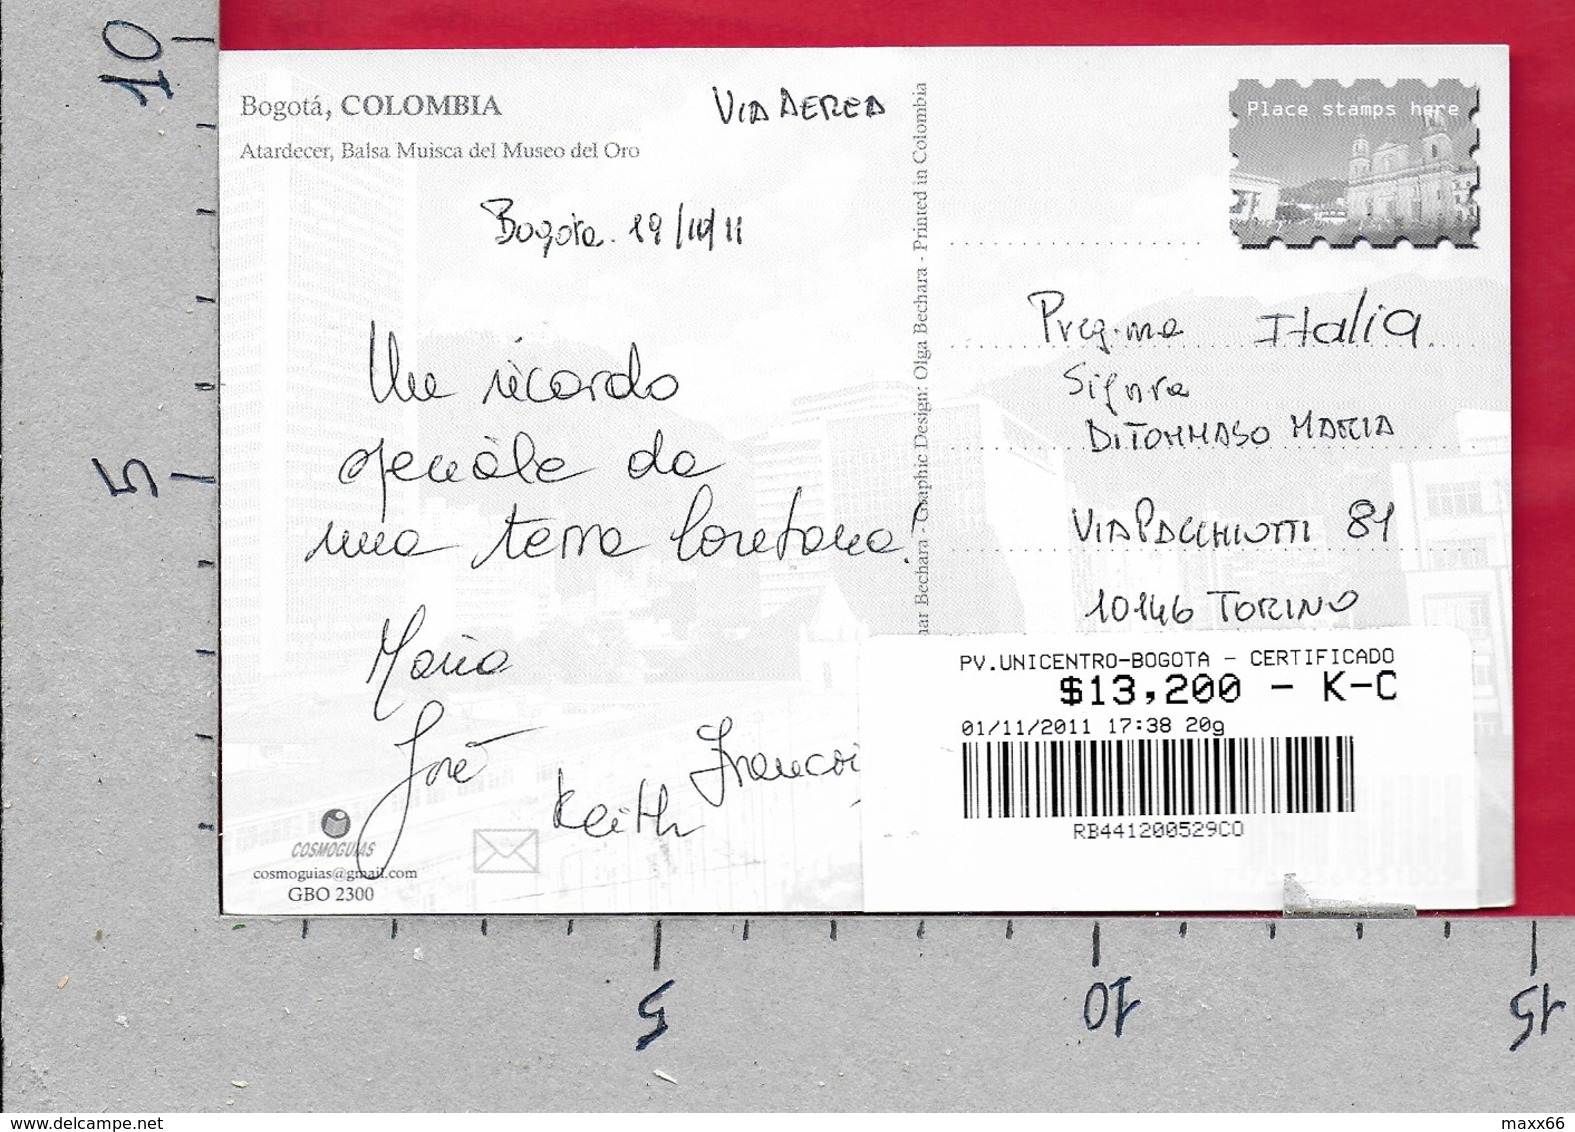 10
5
Bogotá, COLOMBIA
Atardecer, Balsa Muisca del Museo del Oro
VIA AEREA
Bogota. 19/10/11
Un ricordo
geniale da
una terra lontana!
Maria
José
Keith
Francoi
COSMOGUIAS
cosmoguias@gmail.com
GBO 2300
ar Bechara - Graphic Design: Olga Bechara - Printed in Colombia
Place stamps here
Preg.ma Italia
Sig.ra
DI TOMMASO MARIA
VIA PACCHIOTTI 81
10146 TORINO
PV.UNICENTRO-BOGOTA - CERTIFICADO
$13,200 - K-C
01/11/2011 17:38 20g
RB441200529CO
5
10
15
www.delcampe.net
maxx66